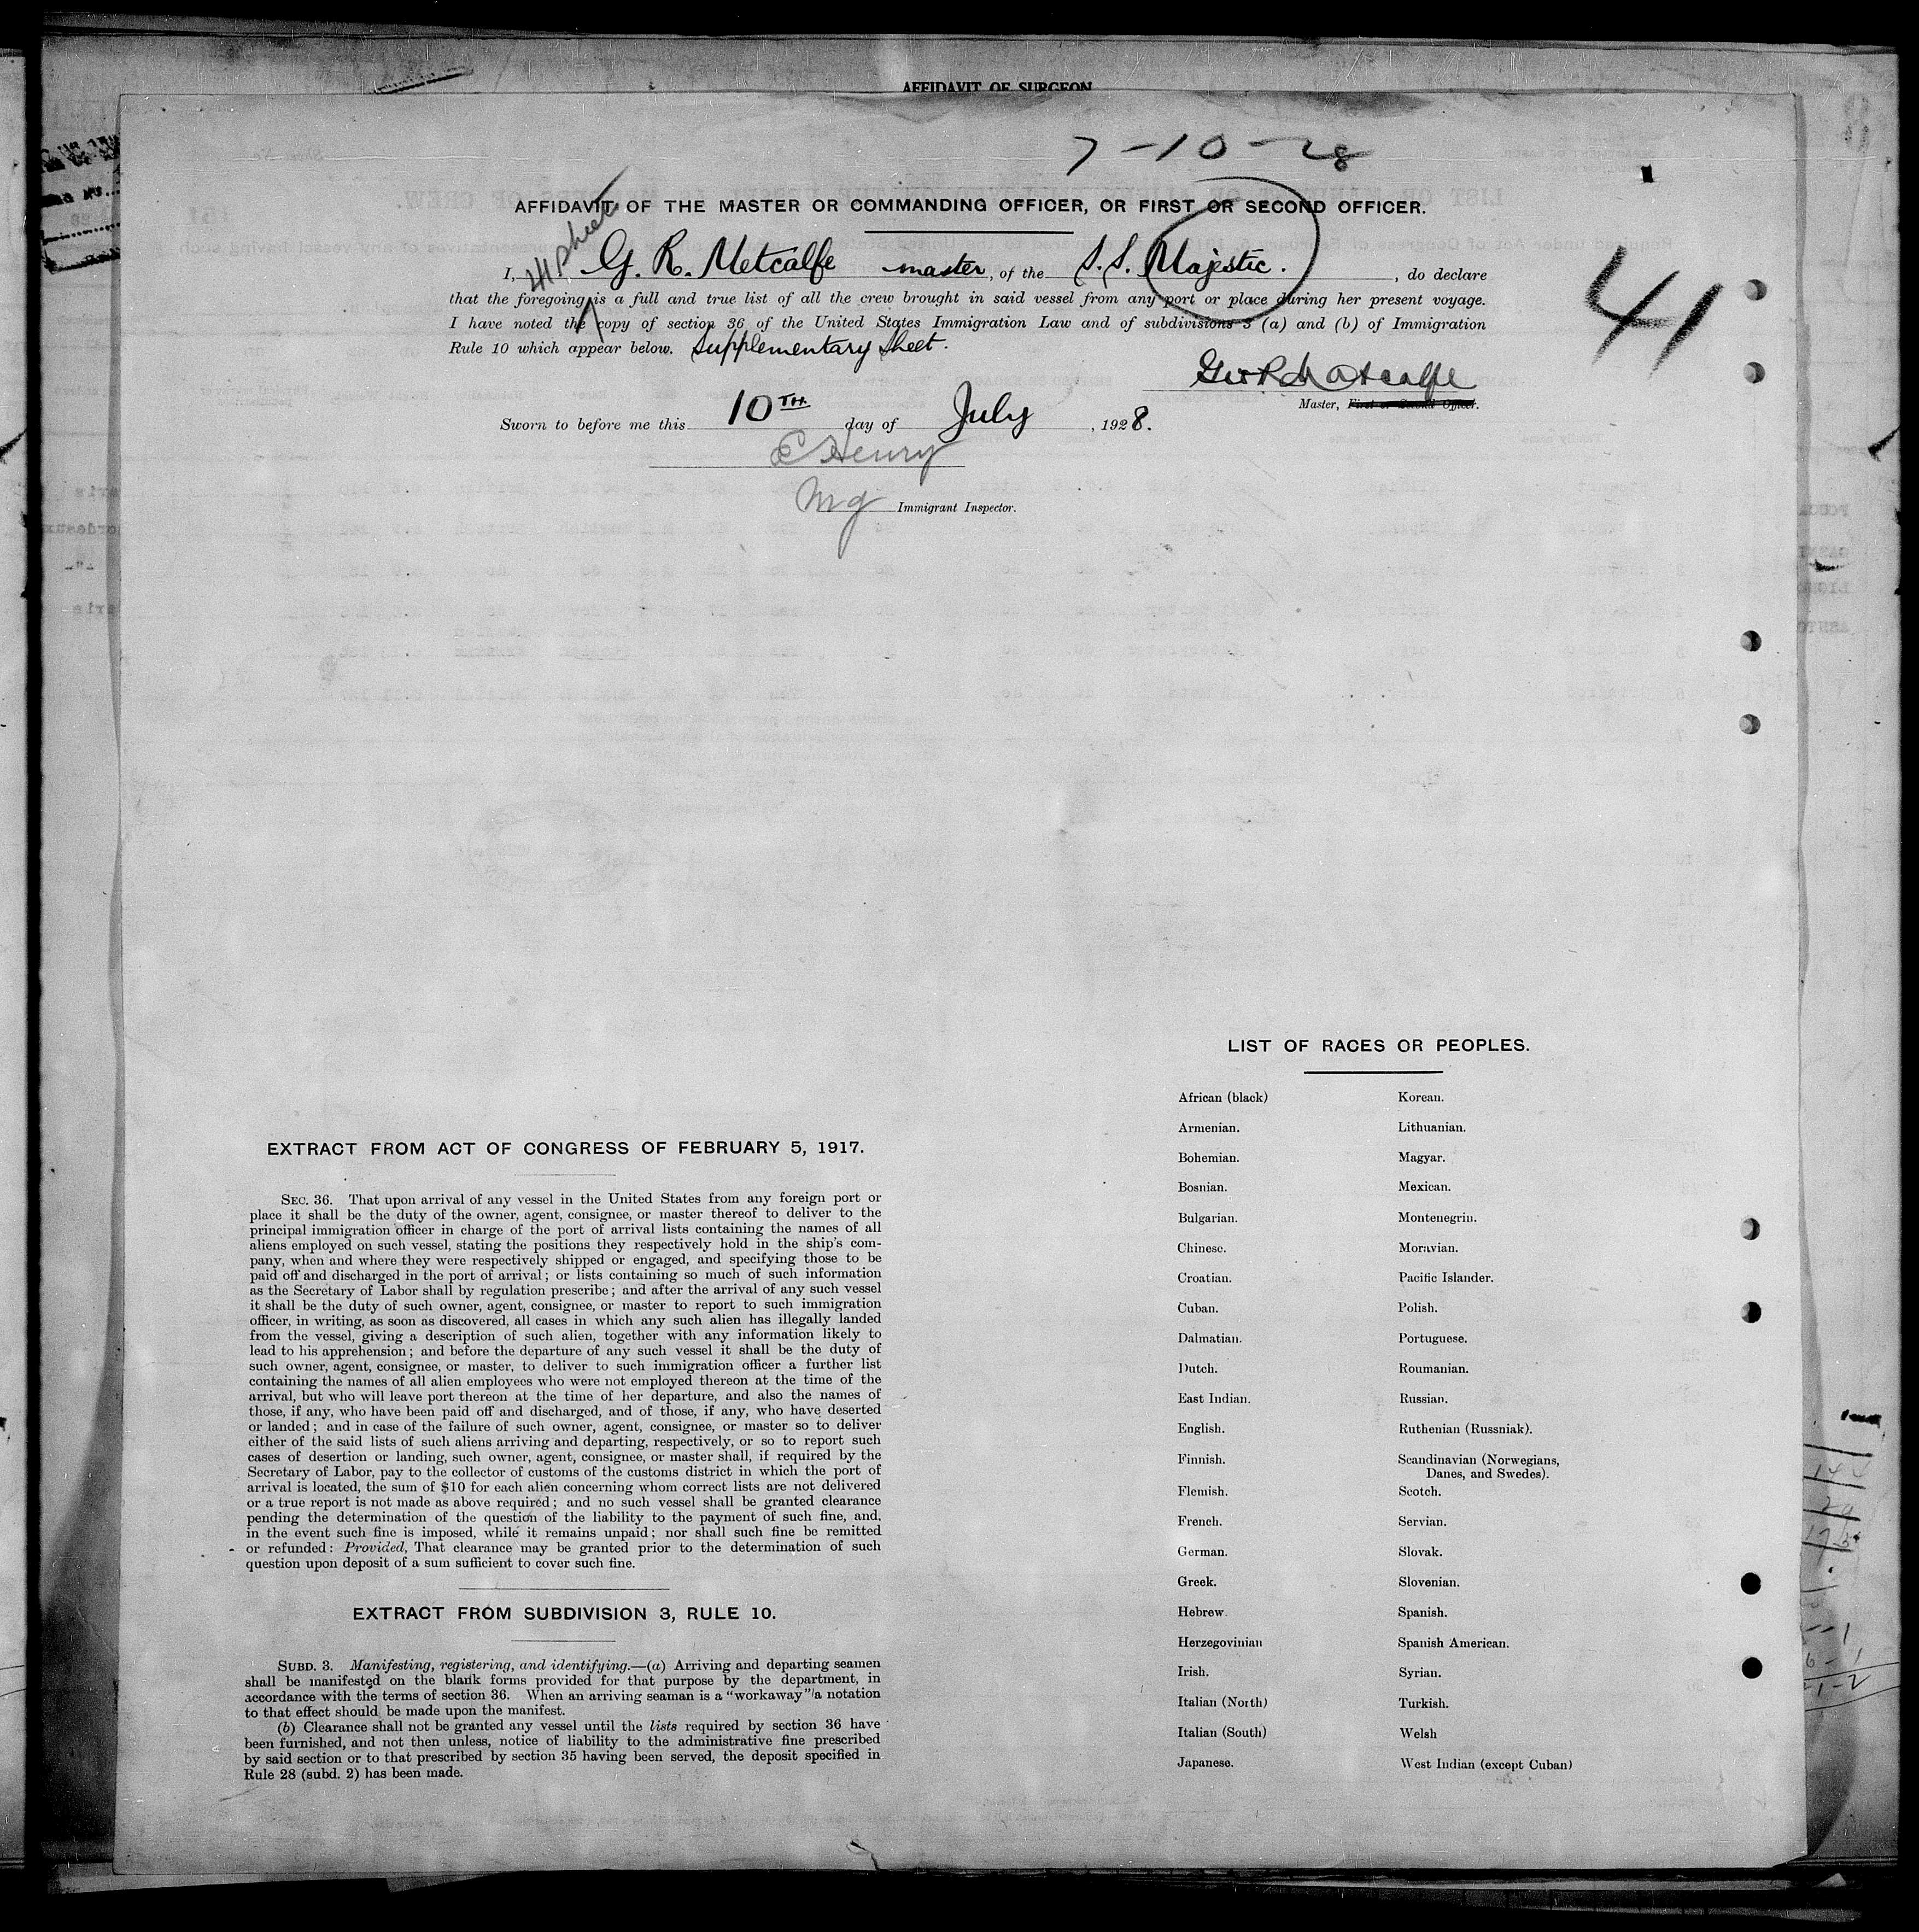 AFFIDAVIT OF SURGEON
7-10-28
AFFIDAVIT OF THE MASTER OR COMMANDING OFFICER, OR FIRST OR SECOND OFFICER.
I, G. R. Metcalfe master, of the S.S. Majestic. , do declare
that the foregoing is a full and true list of all the crew brought in said vessel from any port or place during her present voyage.
41
I have noted the copy of section 36 of the United States Immigration Law and of subdivisions 3 (a) and (b) of Immigration
Rule 10 which appear below. Supplementary Sheet.
Geo R Metcalfe
Master, First or Second Officer.
Sworn to before me this 10TH day of July , 1928.
Henry
Immigrant Inspector.
LIST OF RACES OR PEOPLES.
African (black) Korean.
Armenian. Lithuanian.
Bohemian. Magyar.
Bosnian. Mexican.
Bulgarian. Montenegrin.
Chinese. Moravian.
Croatian. Pacific Islander.
Cuban. Polish.
Dalmatian. Portuguese.
Dutch. Roumanian.
East Indian. Russian.
English. Ruthenian (Russniak).
Finnish. Scandinavian (Norwegians,
Danes, and Swedes).
Flemish. Scotch.
French. Servian.
German. Slovak.
Greek. Slovenian.
Hebrew. Spanish.
Herzegovinian Spanish American.
Irish. Syrian.
Italian (North) Turkish.
Italian (South) Welsh
Japanese. West Indian (except Cuban)
EXTRACT FROM ACT OF CONGRESS OF FEBRUARY 5, 1917.
SEC. 36. That upon arrival of any vessel in the United States from any foreign port or
place it shall be the duty of the owner, agent, consignee, or master thereof to deliver to the
principal immigration officer in charge of the port of arrival lists containing the names of all
aliens employed on such vessel, stating the positions they respectively hold in the ship's com-
pany, when and where they were respectively shipped or engaged, and specifying those to be
paid off and discharged in the port of arrival; or lists containing so much of such information
as the Secretary of Labor shall by regulation prescribe; and after the arrival of any such vessel
it shall be the duty of such owner, agent, consignee, or master to report to such immigration
officer, in writing, as soon as discovered, all cases in which any such alien has illegally landed
from the vessel, giving a description of such alien, together with any information likely to
lead to his apprehension; and before the departure of any such vessel it shall be the duty of
such owner, agent, consignee, or master, to deliver to such immigration officer a further list
containing the names of all alien employees who were not employed thereon at the time of the
arrival, but who will leave port thereon at the time of her departure, and also the names of
those, if any, who have been paid off and discharged, and of those, if any, who have deserted
or landed; and in case of the failure of such owner, agent, consignee, or master so to deliver
either of the said lists of such aliens arriving and departing, respectively, or so to report such
cases of desertion or landing, such owner, agent, consignee, or master shall, if required by the
Secretary of Labor, pay to the collector of customs of the customs district in which the port of
arrival is located, the sum of $10 for each alien concerning whom correct lists are not delivered
or a true report is not made as above required; and no such vessel shall be granted clearance
pending the determination of the question of the liability to the payment of such fine, and,
in the event such fine is imposed, while it remains unpaid; nor shall such fine be remitted
or refunded: Provided, That clearance may be granted prior to the determination of such
question upon deposit of a sum sufficient to cover such fine.
EXTRACT FROM SUBDIVISION 3, RULE 10.
SUBD. 3. Manifesting, registering, and identifying.—(a) Arriving and departing seamen
shall be manifested on the blank forms provided for that purpose by the department, in
accordance with the terms of section 36. When an arriving seaman is a "workaway" a notation
to that effect should be made upon the manifest.
(b) Clearance shall not be granted any vessel until the lists required by section 36 have
been furnished, and not then unless, notice of liability to the administrative fine prescribed
by said section or to that prescribed by section 35 having been served, the deposit specified in
Rule 28 (subd. 2) has been made.